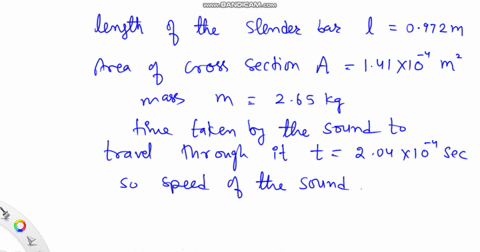 WWW.BANDICAM.COM
length of the slender bar l = 0.972 m
Area of cross section A = 1.41 × 10⁻⁴ m²
mass m = 2.65 kg
time taken by the sound to
travel through it t = 2.04 × 10⁻⁴ sec
so speed of the sound